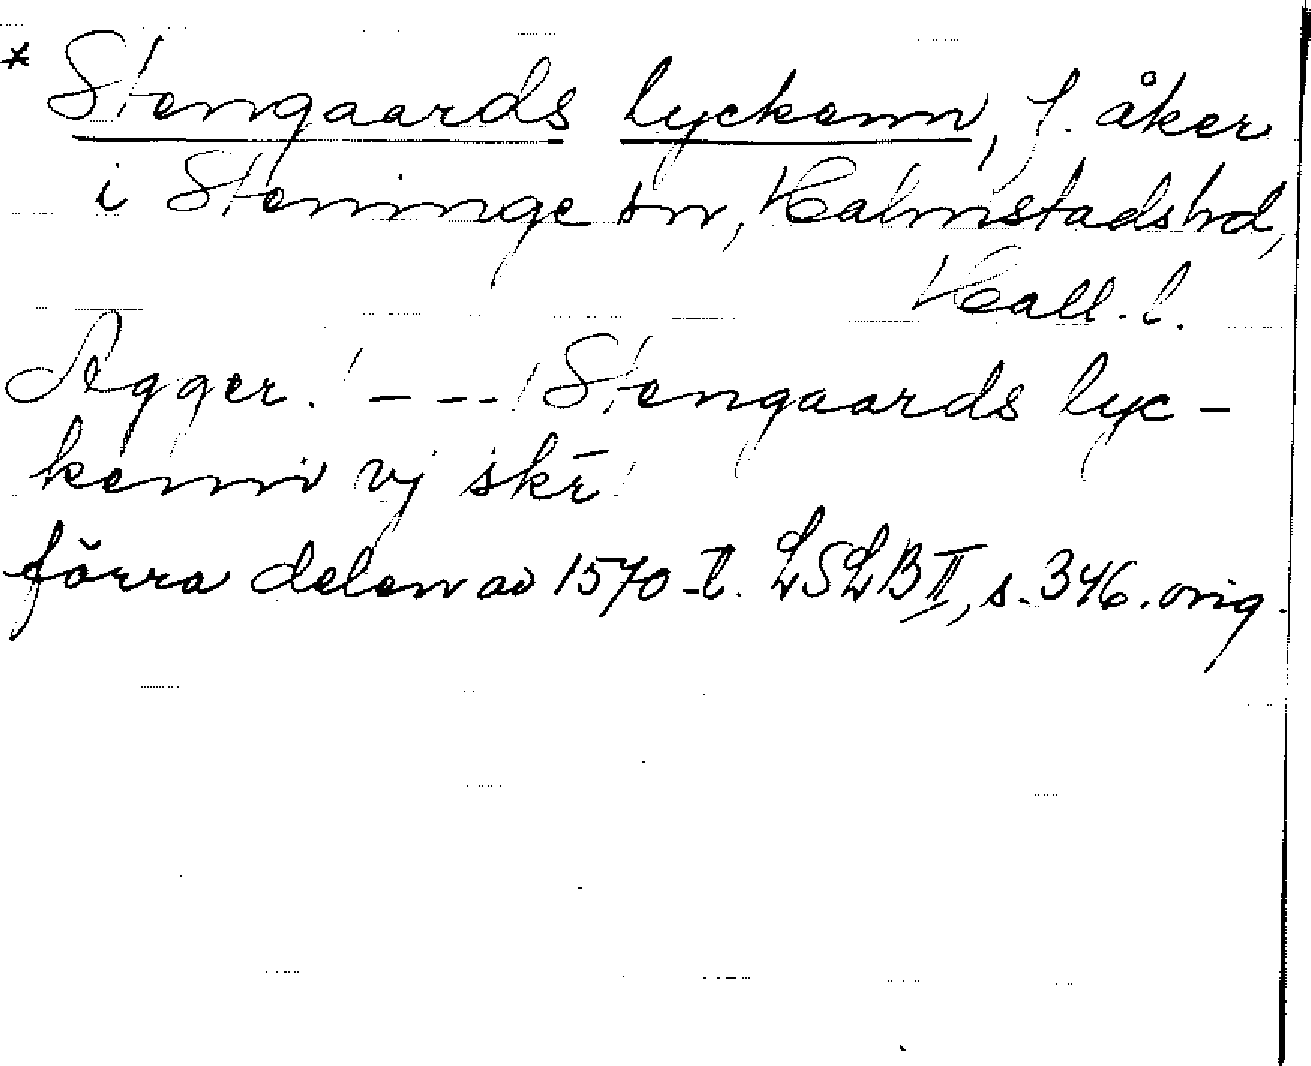 * Stengaards lyckenn, f. åker
i Steninge sn, Halmstads hd,
Hall. l.
Agger! --- ! Stengaards lyc-
kenn vj skr̄!
förra delen av 1570-t. LSLB II, s. 346. orig.